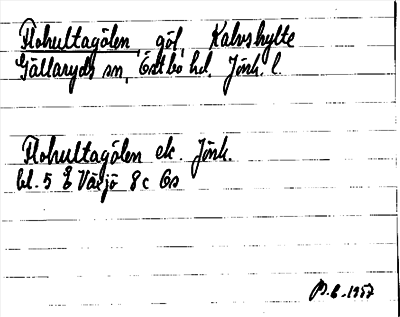 Flohultagölen, göl, Kalvshylte
Gällaryds sn, Östbo hd, Jönk. l.
Flohultagölen ek. Jönk.
bl. 5 E Växjö 8c 6s
B.E. 1957